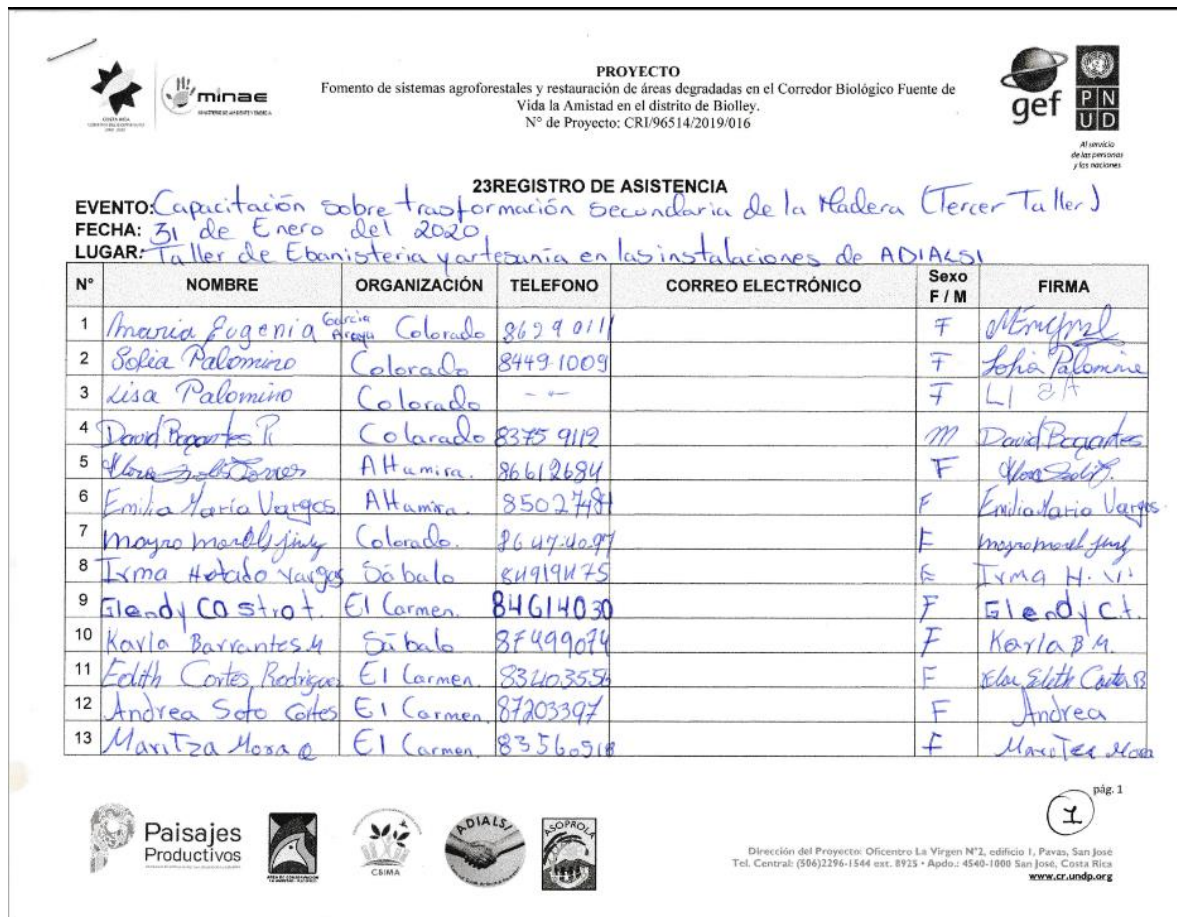 minae
PROYECTO
Fomento de sistemas agroforestales y restauración de áreas degradadas en el Corredor Biológico Fuente de
Vida la Amistad en el distrito de Biolley.
N° de Proyecto: CRI/96514/2019/016
gef
PN
UD
Al servicio
de las personas
y las naciones
23REGISTRO DE ASISTENCIA
EVENTO: Capacitación sobre trasformación Secundaria de la Madera (Tercer Taller)
FECHA: 31 de Enero del 2020
LUGAR: Taller de Ebanisteria y artesania en las instalaciones de ADIALSI
N° NOMBRE ORGANIZACIÓN TELEFONO CORREO ELECTRÓNICO Sexo F / M FIRMA
1 Maria Eugenia Garcia Araya Colorado 86290111 F
2 Sofia Palomino Colorado 8449-1009 F Sofia Palomino
3 Lisa Palomino Colorado -- F LISA
4 David Bogantes R Colarado 8375 9112 M David Bogantes
5 Altamira. 86612684 F
6 Emilia María Vargas. Altamira. 8502 F Emilia Maria Vargas.
7 Colorado. F
8 Irma Hurtado Vargas Sábalo 84919475 F Irma H. V.
9 Glendy Castro t. El Carmen. 84614030 F Glendy C.t.
10 Karla Barrantes M Sábalo 87499074 F Karla B M.
11 Edith Cortes Rodriguez El Carmen. 83403556 F Edith
12 Andrea Soto Cortes El Carmen. 87203397 F Andrea
13 Maritza Mora Q El Carmen. F Maritza Mora
pág. 1
1
Paisajes
Productivos
CBIMA
ADIALSI
ASOPROLA
Dirección del Proyecto: Oficentro La Virgen N°2, edificio 1, Pavas, San José
Tel. Central: (506)2296-1544 ext. 8925 • Apdo.: 4540-1000 San José, Costa Rica
www.cr.undp.org